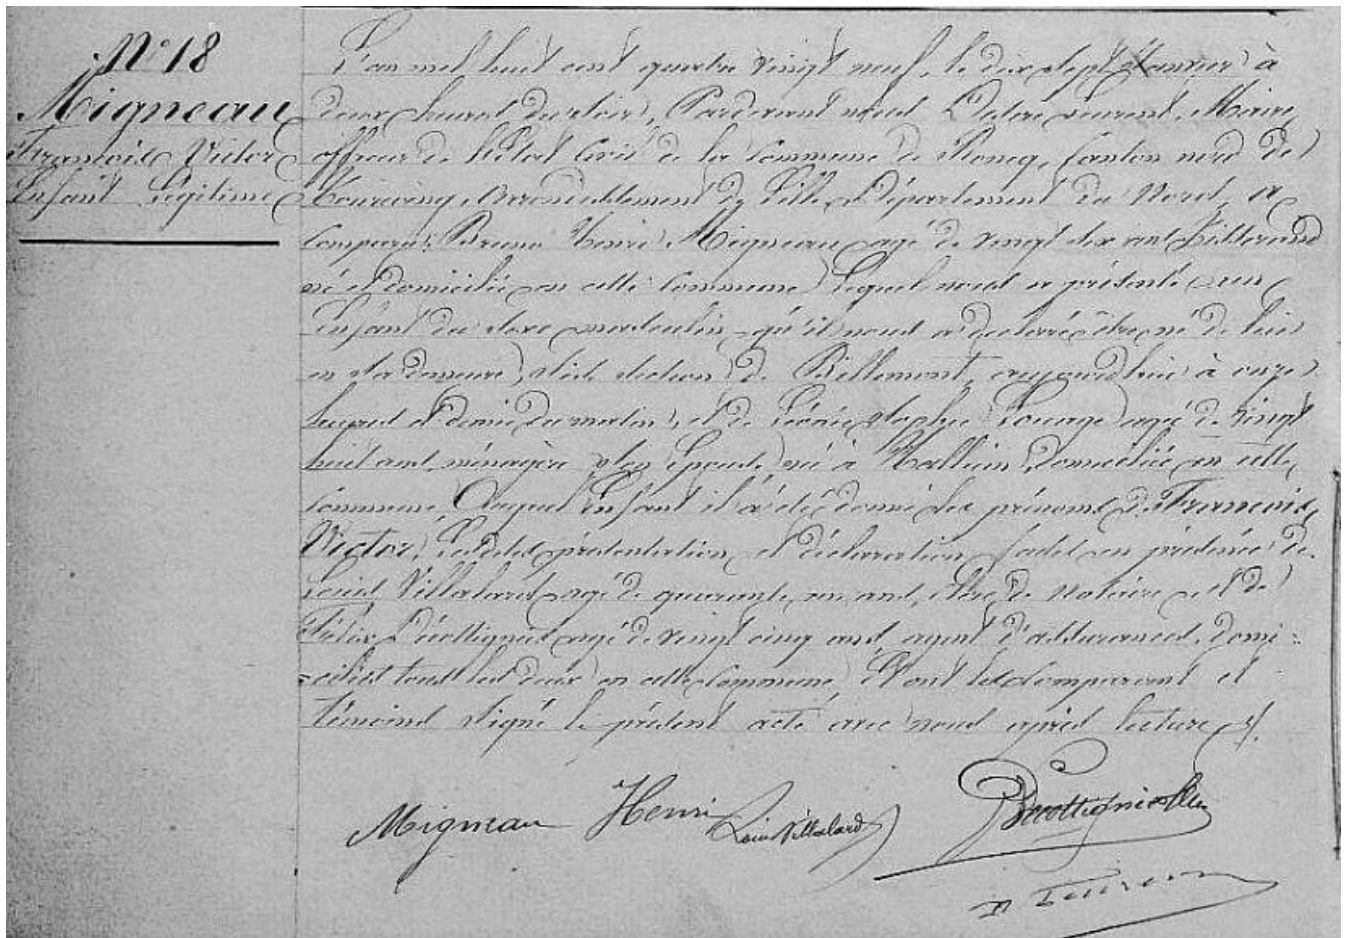 N° 18
Migneau
François Victor
Enfant Légitime
L'an mil huit cent quatre vingt neuf, le dix sept Janvier à
deux heures du soir, Pardevant nous Maire,
officier de l'Etat Civil de la Commune de Roncq, Canton nord de
Tourcoing, arrondissement de Lille, Département du Nord, a
comparu: Bruno Henri Migneau, agé de vingt six ans,
né et domicilié en cette Commune, Lequel nous a présenté un
Enfant du sexe masculin, qu'il nous a déclaré être né de lui
en sa demeure, sise section de Billemont, aujourd'hui à onze
heures et demie du matin, et de Léonie Sophie Sonage agé de vingt
huit ans, ménagère son épouse, né à Halluin, domiciliée en cette
commune. Auquel Enfant il a été donné les prénoms de François
Victor. Lesdites présentation et déclaration faites en présence de
Louis Villalard agé de quarante un ans, Clerc de Notaire et de
Félix Décottignies agé de vingt cinq ans, agent d'assurances, domi=
=ciliés tous les deux en cette Commune, Et ont les Comparant et
témoins signé le présent acte avec nous après lecture ./.
Migneau Henri Louis Villalard Decottignies